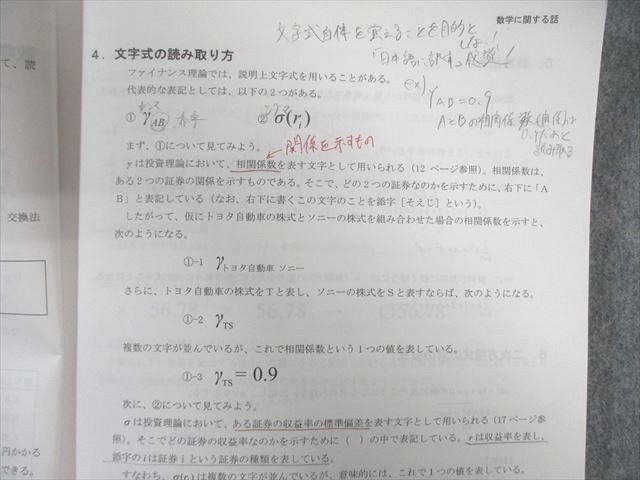 数学に関する話
文字式自体を覚えることを目的と
しない!
「日本語に訳す」感覚!
4．文字式の読み取り方
ex)
γAB=0.9
AとBの相関係数(相関)は
0.9
ファイナンス理論では、説明上文字式を用いることがある。
代表的な表記としては、以下の2つがある。
① γAB ② σ(ri)
添字
関係を示すもの
まず、①について見てみよう。
γは投資理論において、相関係数を表す文字として用いられる（12 ページ参照）。相関係数は、
ある2つの証券の関係を示すものである。そこで、どの2つの証券なのかを示すために、右下に「A
B」と表記している（なお、右下に書くこの文字のことを添字［そえじ］という）。
したがって、仮にトヨタ自動車の株式とソニーの株式を組み合わせた場合の相関係数を示すと、
次のようになる。
①-1 γトヨタ自動車 ソニー
さらに、トヨタ自動車の株式をTと表し、ソニーの株式をSと表すならば、次のようになる。
①-2 γTS
複数の文字が並んでいるが、これで相関係数という1つの値を表している。
①-3 γTS = 0.9
次に、②について見てみよう。
σは投資理論において、ある証券の収益率の標準偏差を表す文字として用いられる（17ページ参
照）。そこでどの証券の収益率なのかを示すために（ ）の中で表記している。rは収益率を表し、
添字のiは証券iという証券の種類を表している。
すなわち、σ(ri)は複数の文字が並んでいるが、意味的には、これで1つの値を表している。
て、読
交換法
円かかる
できる。